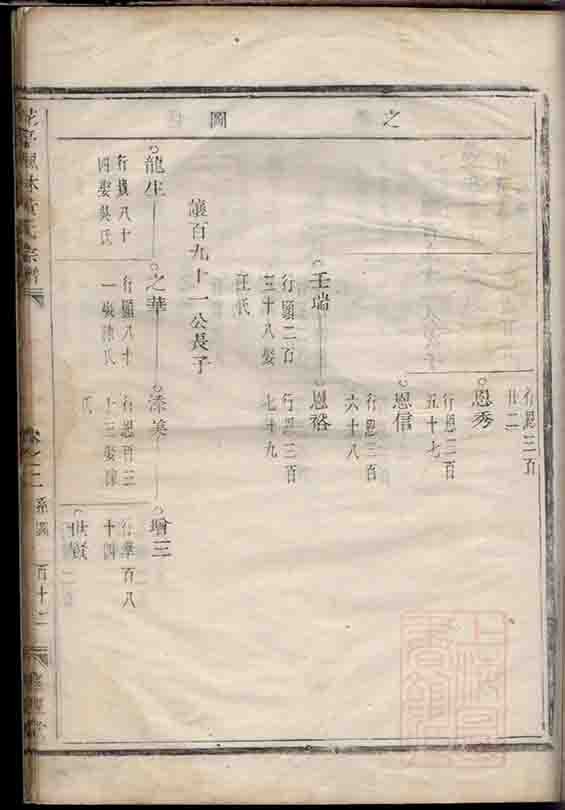 之
圖
行恩三百
廿二
恩秀
行恩三百
五十七
恩信
行恩三百
六十八
壬瑞
行顯二百
三十八娶
汪氏
恩裕
行恩三百
七十九
讓百九十一公長子
龍生
行讓八十
四娶吳氏
之華
行顯八十
一娶陳氏
漆美
行恩百三
十三娶陳
氏
增三
行華百八
十四
世賢
卷之三
系圖
百十二